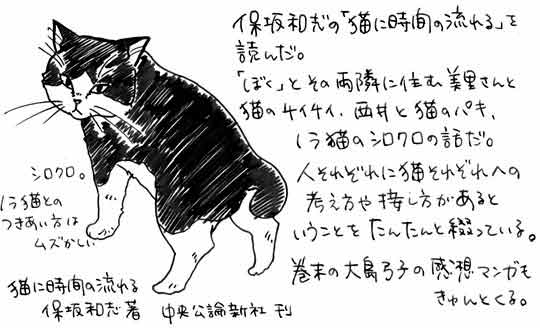 保坂和志の「猫に時間の流れる」を
読んだ。
「ぼく」とその両隣に住む美里さんと
猫のチイチイ、西井と猫のパキ、
ノラ猫のシロクロの話だ。
人それぞれに猫それぞれへの
考え方や接し方があると
いうことをたんたんと綴っている。
巻末の大島弓子の感想マンガも
きゅんとくる。
シロクロ。
ノラ猫との
つきあい方は
ムズかしい
猫に時間の流れる
保坂和志著 中央公論新社 刊